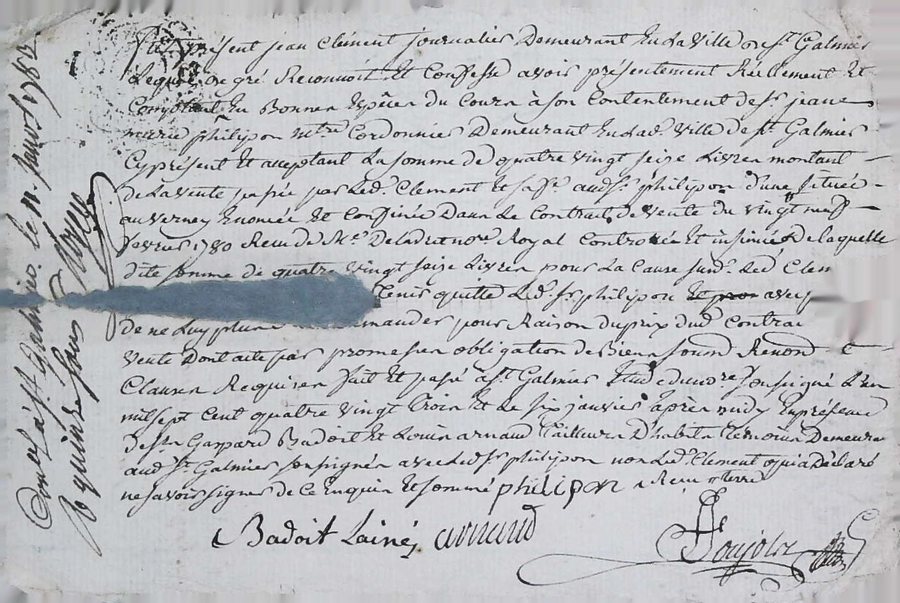 fut présent jean Clément journalier Demeurant En La Ville de st. Galmier
Lequel de gré Reconnoit Et Confesse avoir présentement Reellement Et
Comptant En Bonnes Espèces du Cours à son Contentement de Sr. jean
marie philipon mtre. Cordonnier Demeurant En Lad. Ville de st. Galmier
Cy présent Et acceptant La somme de quatre vingt seize Livres montant
de La vente passée par Led. Clement et sa fe. aud. Sr. philipon d'une située
au verney Enoncée Et Confinée Dans Le Contrat de vente du vingt neuf
fevrier 1780 Recu de Me. notre. Royal Controllé Et insinué De laquelle
dite somme de quatre vingt seize Livres pour La Cause susd. Led. Clem
tenir quitte Led. Sr. philipon avec
de ne Luy plus demander pour Raison du prix dud. Contrat
vente Dont acte par promesses obligation de Biens soum. Renon.
Clauses Requises fait Et passé a st. Galmier Etude du nore. soussigné L'an
mil sept Cent quatre vingt trois Et Le six janvier après midy En présence
de Sr. Gaspard Badoit Et Louis arnaud tailleurs D'habits temoins Demeurant
aud. st. Galmier soussignés avec Led. Sr. philipon non Led. Clement qui a Déclaré
ne savoir signer de Ce Enquis Et sommé philipon
Badoit Lainé arnaud
Conlé à st. Galmier le 11 janv. 1783
R quinze sous